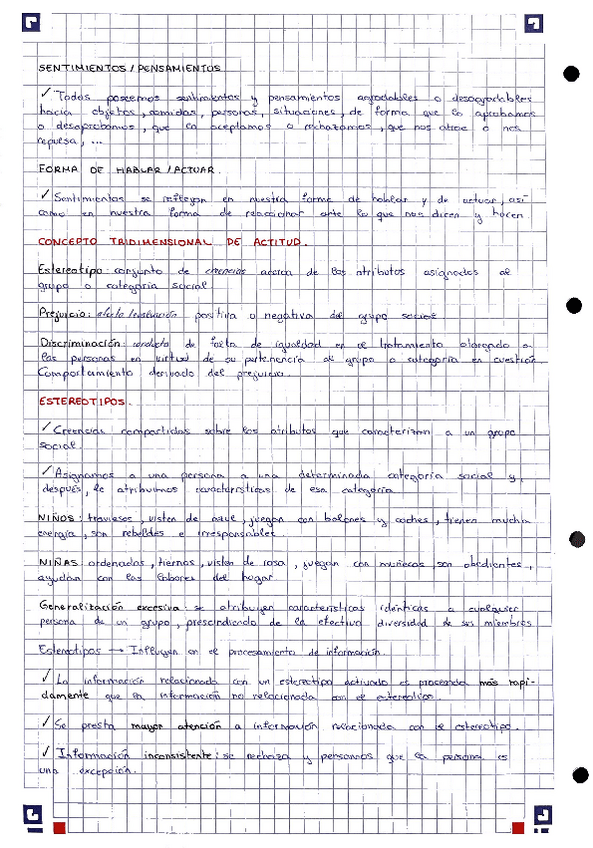 SENTIMIENTOS / PENSAMIENTOS
✓ Todos poseemos sentimientos y pensamientos agradables o desagradables
hacia objetos, comidas, personas, situaciones, de forma que lo aprobamos
o desaprobamos, que la aceptamos o rechazamos, que nos atrae o nos
repulsa, ...
FORMA DE HABLAR / ACTUAR.
✓ Sentimientos se reflejan en nuestra forma de hablar y de actuar, así
como en nuestra forma de reaccionar ante lo que nos dicen y hacen.
CONCEPTO TRIDIMENSIONAL DE ACTITUD.
Estereotipo: conjunto de creencias acerca de los atributos asignados al
grupo o categoría social.
Prejuicio: afecto / evaluación positiva o negativa del grupo social
Discriminación: conducta de falta de igualdad en el tratamiento otorgado a
las personas en virtud de su pertenencia al grupo o categoría en cuestión.
Comportamiento derivado del prejuicio.
ESTEREOTIPOS.
✓ Creencias compartidas sobre los atributos que caracterizan a un grupo
social.
✓ Asignamos a una persona a una determinada categoría social y,
después, le atribuimos características de esa categoría.
NIÑOS: traviesos, visten de azul, juegan con balones y coches, tienen mucha
energía, son rebeldes e irresponsables.
NIÑAS: ordenadas, tiernas, visten de rosa, juegan con muñecas, son obedientes,
ayudan con las labores del hogar.
Generalización excesiva: se atribuyen características idénticas a cualquier
persona de un grupo, prescindiendo de la efectiva diversidad de sus miembros.
Estereotipos → Influyen en el procesamiento de información.
✓ La información relacionada con un estereotipo activado es procesada más rápi-
damente que la información no relacionada con el estereotipo.
✓ Se presta mayor atención a información relacionada con el estereotipo.
✓ Información inconsistente: se rechaza y pensamos que la persona es
una excepción.